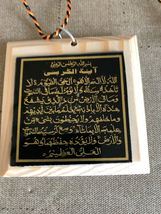 بسم الله الرحمن الرحيم
آية الكرسي
الله لا إله إلا هو الحي القيوم لا
تأخذه سنة ولا نوم له ما في السموات
وما في الأرض من ذا الذي يشفع
عنده إلا بإذنه يعلم ما بين أيديهم
وما خلفهم ولا يحيطون بشيء من
علمه إلا بما شاء وسع كرسيه السموات
والأرض ولا يؤده حفظهما وهو
العلي العظيم